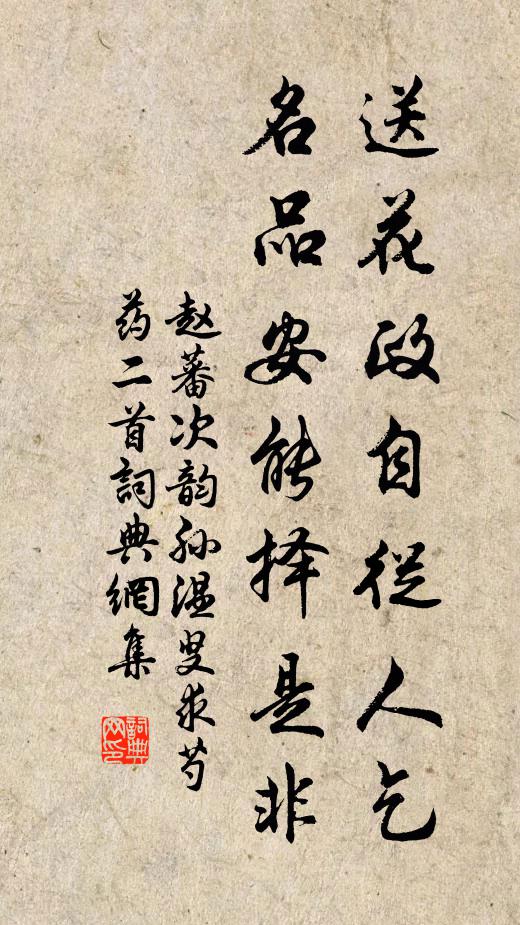 送花政自從人乞
名品安能择是非
赵蕃次韵孙温叟求芍
药二首詞典網集
詞典
网印